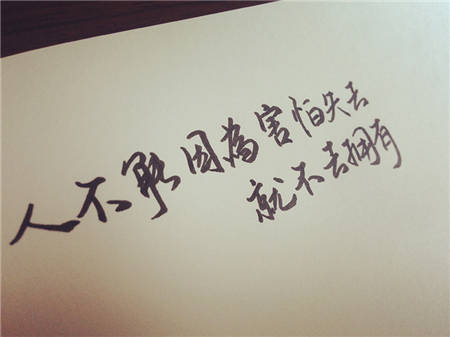 人不能因為害怕失去
就不去拥有